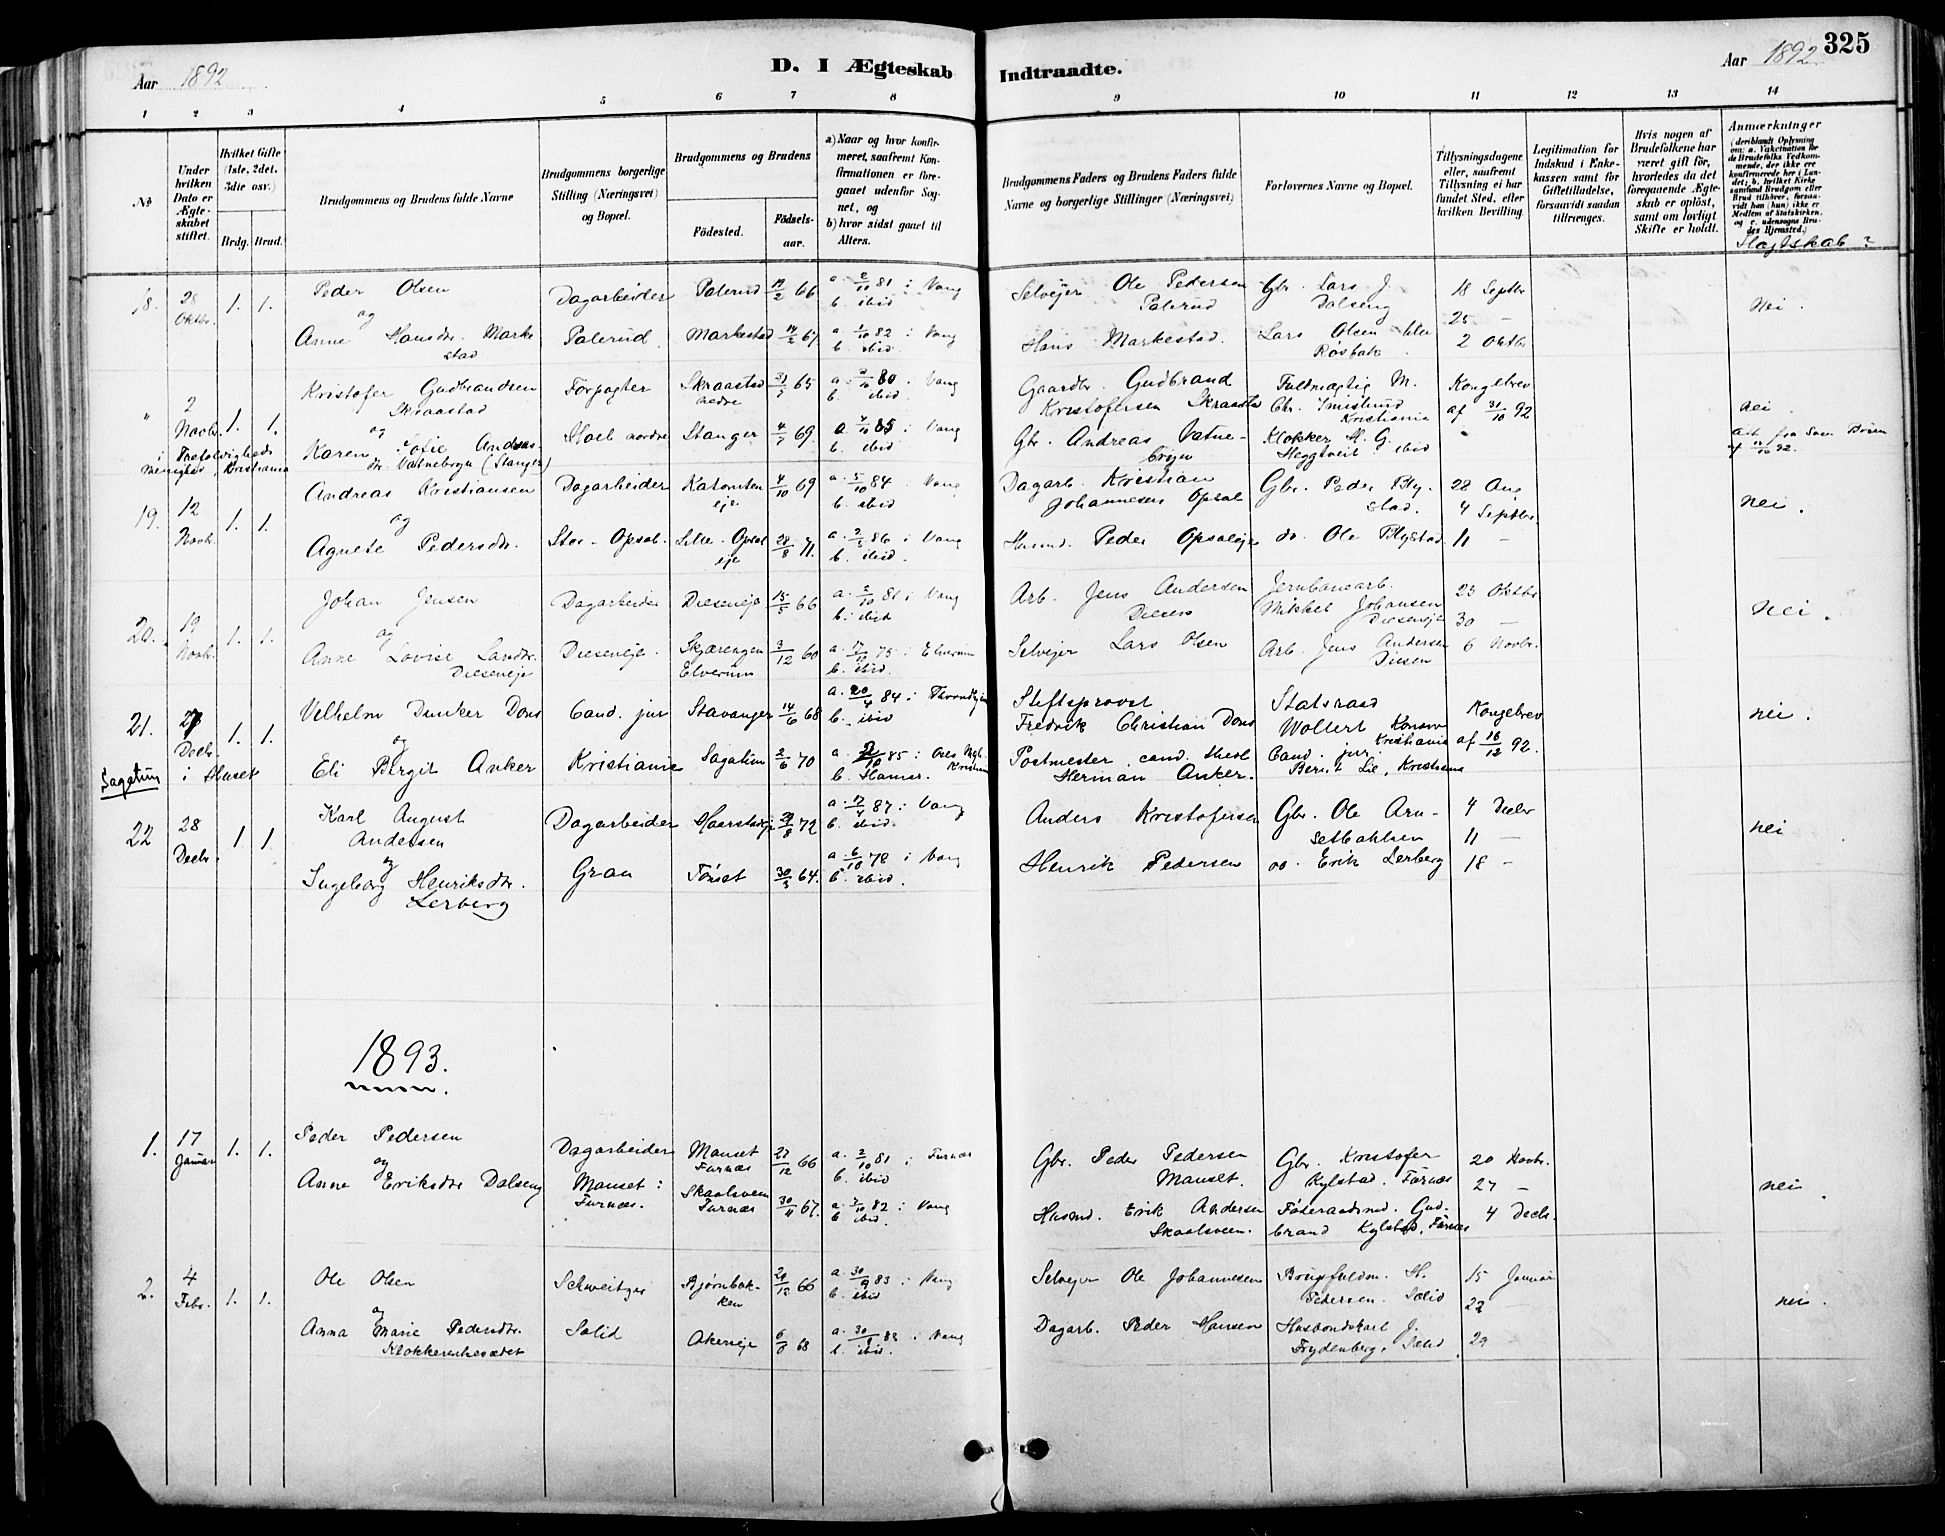 325
Aar 1892
D. I Ægteskab Indtraadte.
Aar 1892
1 2 3 4 5 6 7 8 9 10 11 12 13 14
No
Under hvilken Dato er Ægteskabet stiftet.
Hvilket Gifte (1ste, 2det, 3die osv.)
Brdg. Brud.
Brudgommens og Brudens fulde Navne
Brudgommens borgerlige Stilling (Næringsvei) og Bopæl.
Brudgommens og Brudens
Fødested. Fødselsaar.
a) Naar og hvor konfirmeret, saafremt Konfirmationen er foregaaet udenfor Sognet, og
b) hvor sidst gaaet til Alters.
Brudgommens Faders og Brudens Faders fulde Navne og borgerlige Stillinger (Næringsvei)
Forlovernes Navne og Bopæl.
Tillysningsdagene eller, saafremt Tillysning ei har fundet Sted, efter hvilken Bevilling.
Legitimation for Indskud i Enkekassen samt for Giftetilladelse, forsaavidt saadan tiltrænges.
Hvis nogen af Brudefolkene har været gift før, hvorledes da det foregaaende Ægteskab er opløst, samt om lovligt Skifte er holdt.
Anmærkninger
(deriblandt Oplysning om: a. Vakcination for de Brudefolks Vedkommende, der ikke ere konfirmerede her i Landet; b. hvilket Kirkesamfund Brudgom eller Brud tilhører, forsaavidt han (hun) ikke er Medlem af Statskirken, og c. udensogns Brudes Hjemsted.)
Slægtskab?
18. 28 Oktbr. 1. 1. Peder Olsen Dagarbeider Palerud 19/2 66 a. 2/10 81 i Vang b. ibid Selvejer Ole Pedersen Palerud Gbr. Lars J. Dalseng 18 Septbr nei.
og
Anne Hansdr. Markestad Palerud Markestad 14/2 67 a. 1/10 82 i Vang b. ibid Hans Markestad. Lars Olsen Røsbak 25 - 2 Oktbr
" 2 Novbr. 1. 1. Kristofer Gudbrandsen Skraastad Forpagter Skraastad nedre 65 80 i Vang b. ibid Gaardbr. Gudbrand Kristofersen Skraastad Fuldmægtig M. Chr. Kristiania Kongebrev af 31/10 92 nei
i Trefoldigheds Menighed, Kristiania
og
Karen Sofie Andreasdr. Vatnebryn (Stanger) Hoel nordre Stanger 69. a. 4/10 85 i Vang b. ibid. Gbr. Andreas Vatnebryn Klokker H. G. Heggtveit ibid
19. 12 Novbr. 1. 1. Andreas Kristiansen Dagarbeider 4/10 69 a. 5/10 84 i Vang b. ibid Dagarb. Kristian Johannesen Opsal Gbr. Peder 28 Aug 4 Septbr. nei.
og
Agnete Pedersdr. Store-Opsal. Lille-Opsal eje 28/8 71. a. 86 i Vang b. ibid. Husmd. Peder Opsaleje do. Ole 11 -
20. 19 Novbr. 1. 1. Johan Jensen Dagarbeider Dieseneje 15/5 66 a. 2/10 81 i Vang b. ibid Arb. Jens Andersen Diesen Jernbanearb. Mikkel Johansen Dieseneje 23 Oktbr 30 - nei.
og
Anne Lovise Larsdr. Dieseneje Dieseneje. Skjærengen Elverum 3/12 60 a. 75 i Elverum b. ibid. Selvejer Lars Olsen Arb. Jens Andersen Diesen 6 Novbr.
21. 27 Decbr. 1. 1. Vilhelm Dunker Dons Cand. jur Stavanger 14/6 68 a. 20/4 84 i Throndhjem b. ibid Stiftsprovst Fredrik Christian Dons Statsraad Wollert Konow Kristiania Kongebrev af 16/12 92. nei.
Sagatun i Huset
og
Eli Birgit Anker Kristiania Sagatun 2/6 70 a. 2/10 85 i Oslo Mgh. Kristiania b. Hamar. Postmester, cand. theol Herman Anker. Cand. jur. Bernt Lie, Kristiania
22 28 Decbr. 1 1. Karl August Andersen Dagarbeider Haarstadeje 72 a. 17/4 87 i Vang b. ibid. Anders Kristofersen Gbr. Ole Arnsetbakken 4 Decbr 11 - nei
og
Ingeborg Henriksdr. Lerberg Gran Tønset 30/3 64. a. 6/10 78 i Vang b. ibid. Henrik Pedersen do. Erik Lerberg 18 -
1893.
1. 17 Januar 1. 1. Peder Pedersen Dagarbeider Manset Furnæs 27/12 66 a. 2/10 81 i Furnæs b. ibid. Gbr. Peder Pedersen Manset. Gbr. Kristofer Kylstad. Furnæs 20 Novbr. 27 - nei.
og
Anne Eriksdr Dalseng Manset i Furnæs. Skaalsveen Furnæs 30/11 67. a. 1/10 82 i Vang b. ibid. Husmd. Erik Andersen Skaalsveen. Føderaadsmd. Gudbrand Kylstad, Furnæs 4 Decbr.
2. 4 Febr. 1. 1. Ole Olsen Schweitzer Bjørnbakken 66 a. 30/9 83 i Vang b. ibid Selvejer Ole Johannesen Brugsfuldm. H. Pedersen. Sælid 15 Januar 22 - nei.
og
Anna Marie Pedersdr. Klokkerenkesædet Sælid Akereje 68 a. 30/9 83 i Vang b. ibid. Dagarb. Peder Hansen Husbondskarl J. Frydenberg, Sælid 29